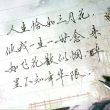 人生恰如三月花，
倾我一生一世念。
来如飞花散似烟，
醉里不知年华限。